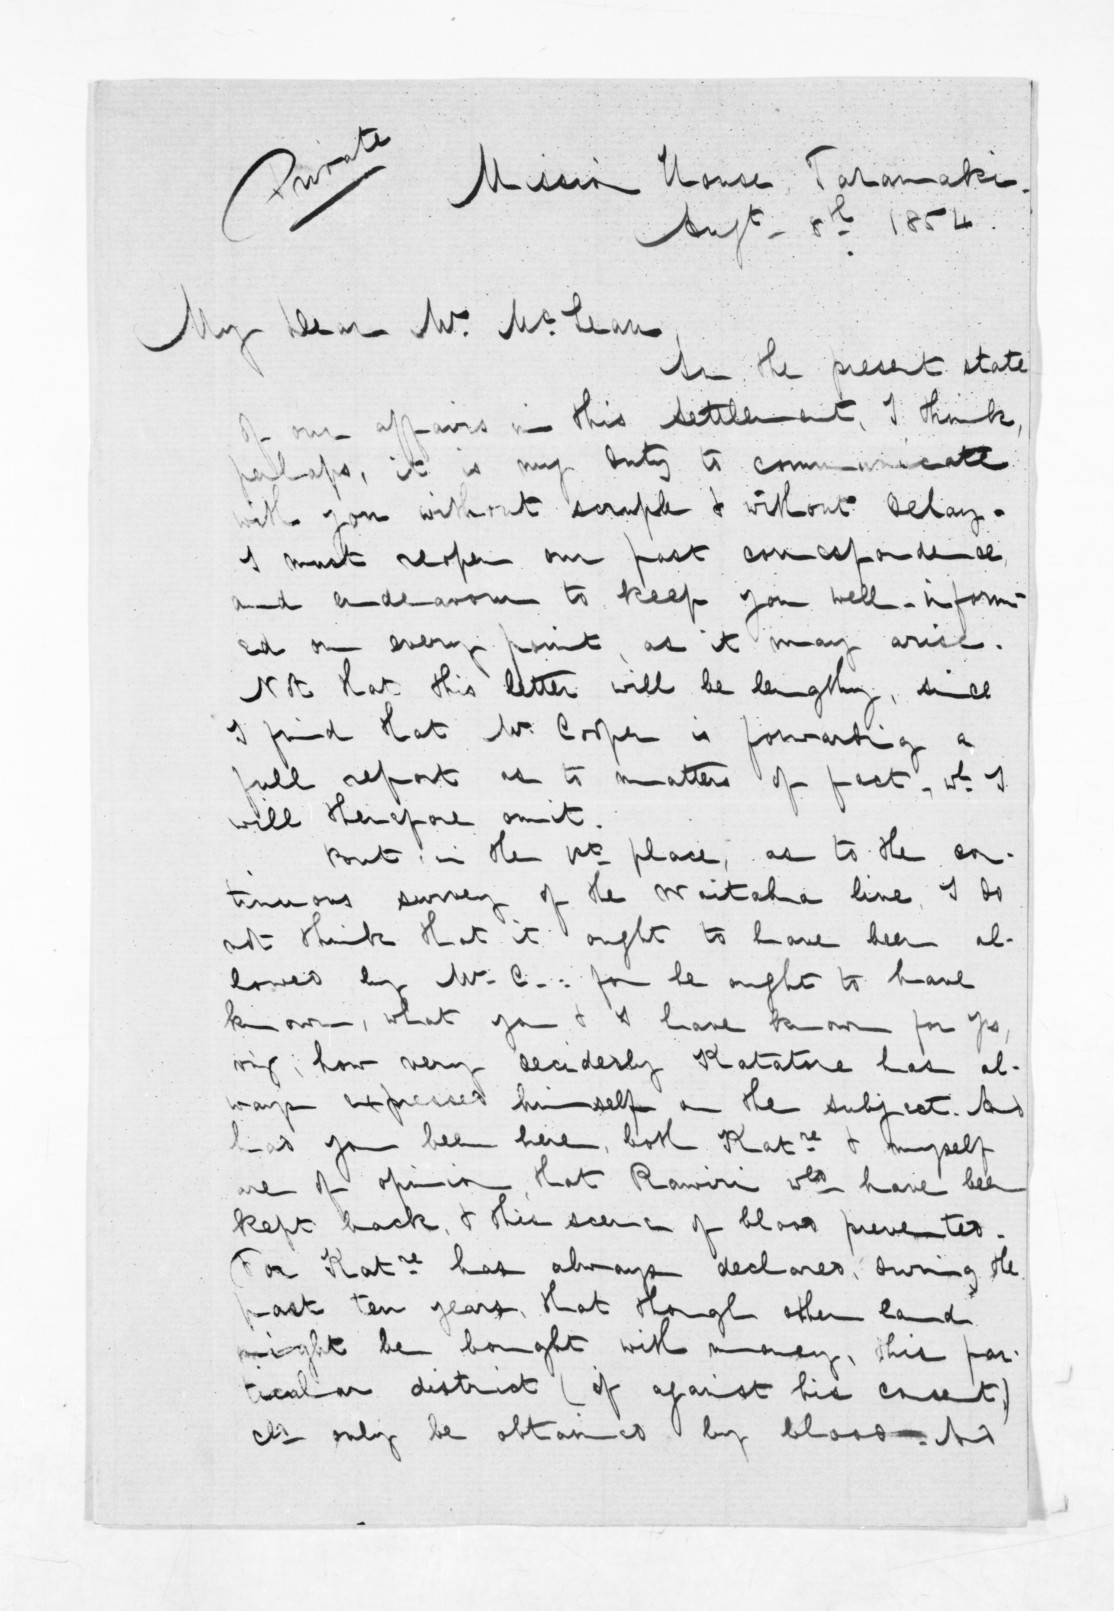 Private
Mission House, Taranaki.
Augt. 8th. 1854.
My dear Mr. McLean,
In the present state
of our affairs in this settlement, I think,
perhaps, it is my duty to communicate
with you without scruple & without delay.
I must reopen our past correspondence,
and endeavour to keep you well-inform-
ed on every point, as it may arise.
Not that this letter will be lengthy, since
I find that Mr. Cooper is forwarding a
full report as to matters of fact, wh. I
will therefore omit.
But, in the 1st. place, as to the con-
tinuous survey of the Waitaha line, I do
not think that it ought to have been al-
lowed by Mr. C.: for he ought to have
known, what you & I have known for ys,
viz; how very decidedly Katatore has al-
ways expressed himself on the subject. And
had you been here, both Katre. & myself
are of opinion, that Rawiri wld. have been
kept back, & this scene of blood prevented.
For Katre. has always declared, during the
past ten years, that though other land
might be bought with money, this par-
ticular district (if against his consent,)
cld. only be obtained by blood. And